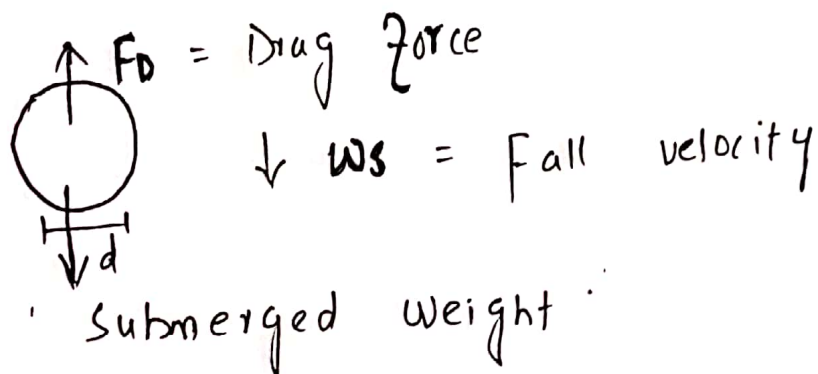 F_D = Drag Force
↓ ws = Fall velocity
d
submerged weight